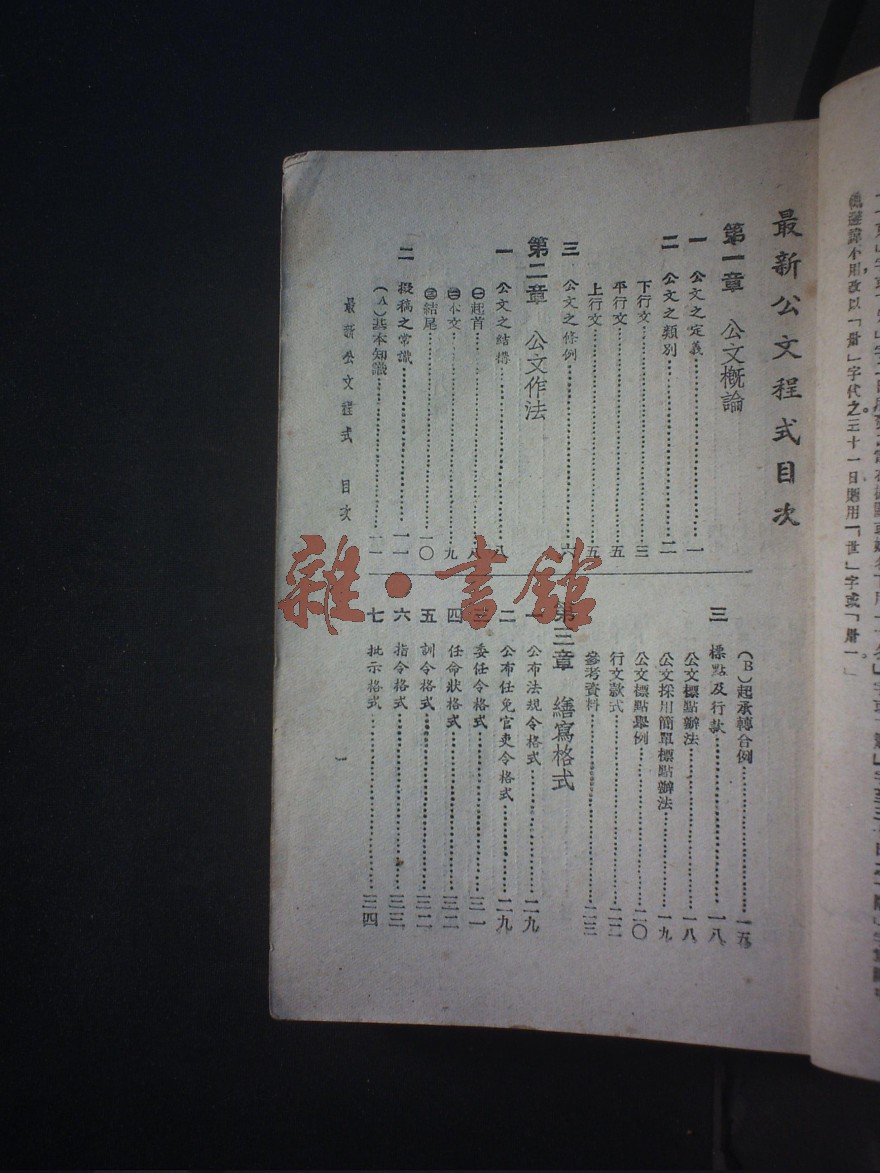 最新公文程式目次
第一章　公文概論
一　公文之定義……一
二　公文之類別……二
下行文……三
平行文……五
上行文……五
三　公文之條例……六
第二章　公文作法
一　公文之結構……八
㊀起首……八
㊁本文……九
㊂結尾……一〇
二　擬稿之常識……一一
（A）基本知識……一一
（B）起承轉合例……一五
三　標點及行款……一八
公文標點辦法……一八
公文採用簡單標點辦法……一九
公文標點舉例……二〇
行文款式……二二
參考資料……二三
第三章　繕寫格式
一　公布法規令格式……二九
二　公布任免官吏令格式……二九
三　委任令格式……三一
四　任命狀格式……三二
五　訓令格式……三二
六　指令格式……三三
七　批示格式……三四
最新公文程式　目次
一
避諱不用，改以「卅」字代之。三十一日則用「世」字或「卅一」
雜·書館